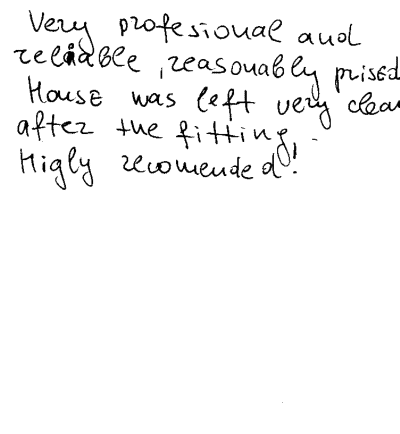 Very profesional and
reliable, reasonably prised
House was left very clean
after the fitting.
Higly recomended!